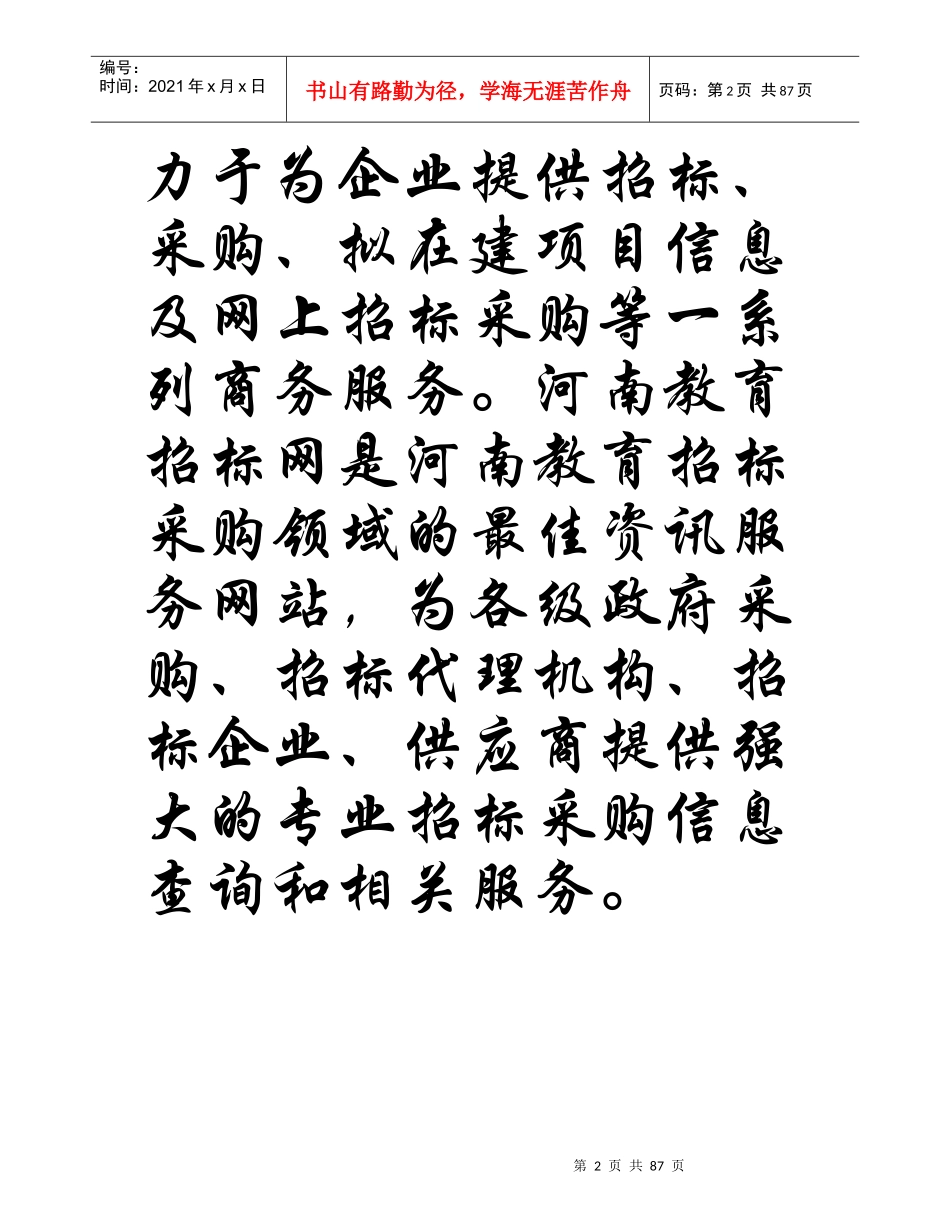 编号：
时间：2021年x月x日
书山有路勤为径，学海无涯苦作舟
页码：第2页 共87页
力于为企业提供招标、
采购、拟在建项目信息
及网上招标采购等一系
列商务服务。河南教育
招标网是河南教育招标
采购领域的最佳资讯服
务网站，为各级政府采
购、招标代理机构、招
标企业、供应商提供强
大的专业招标采购信息
查询和相关服务。
第 2 页 共 87 页